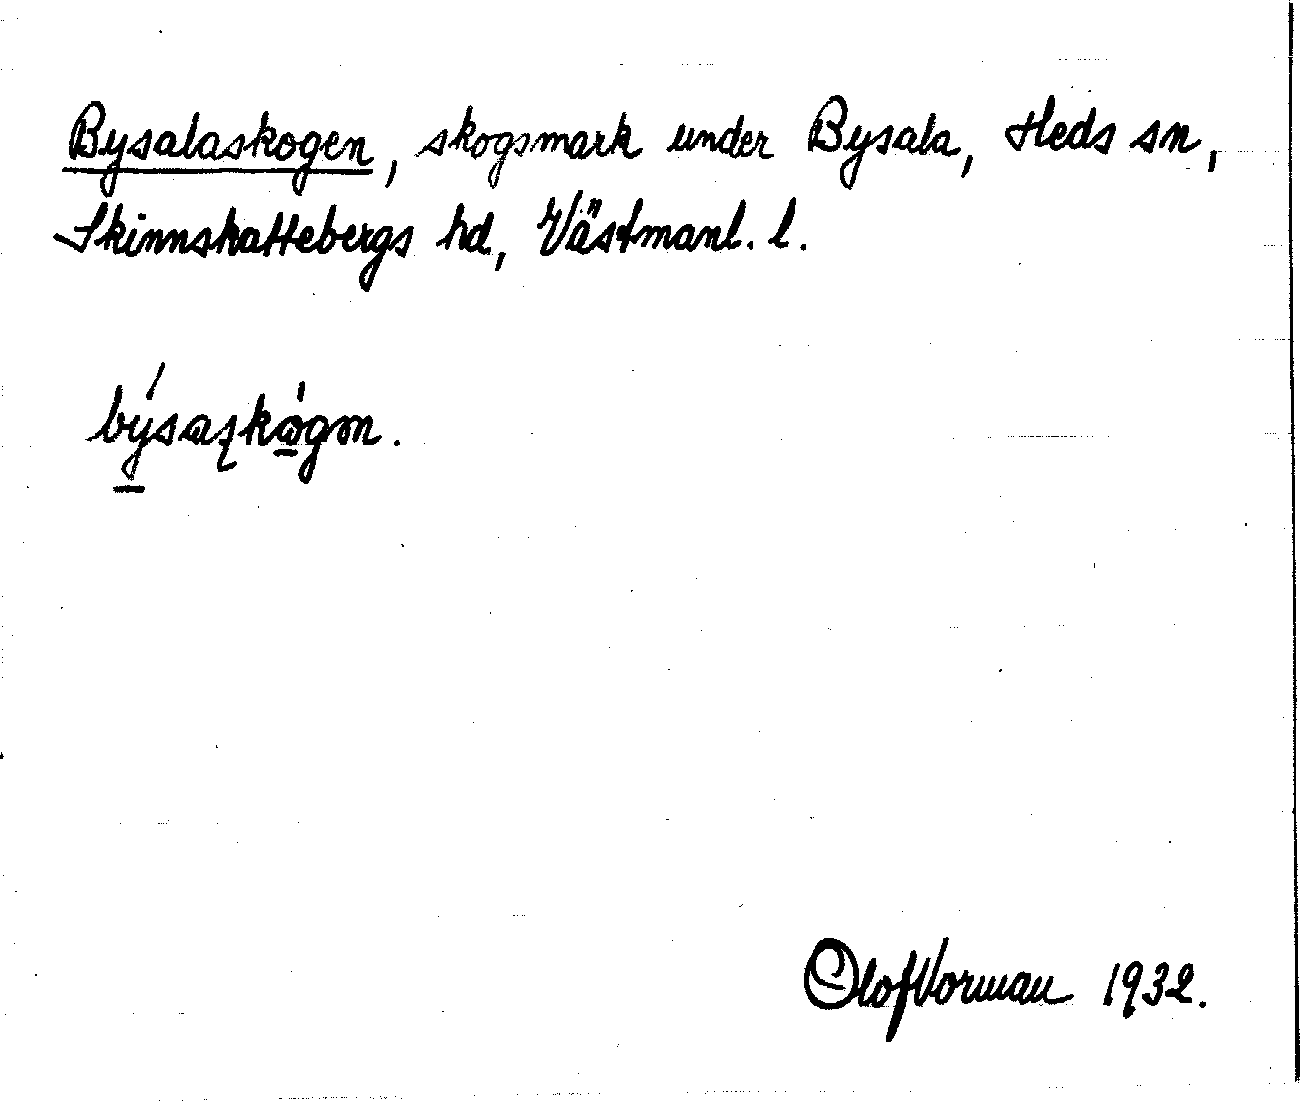 Bysalaskogen, skogsmark under Bysala, Heds sn,
Skinnskattebergs hd, Västmanl. l.
Olof Vorman 1932.